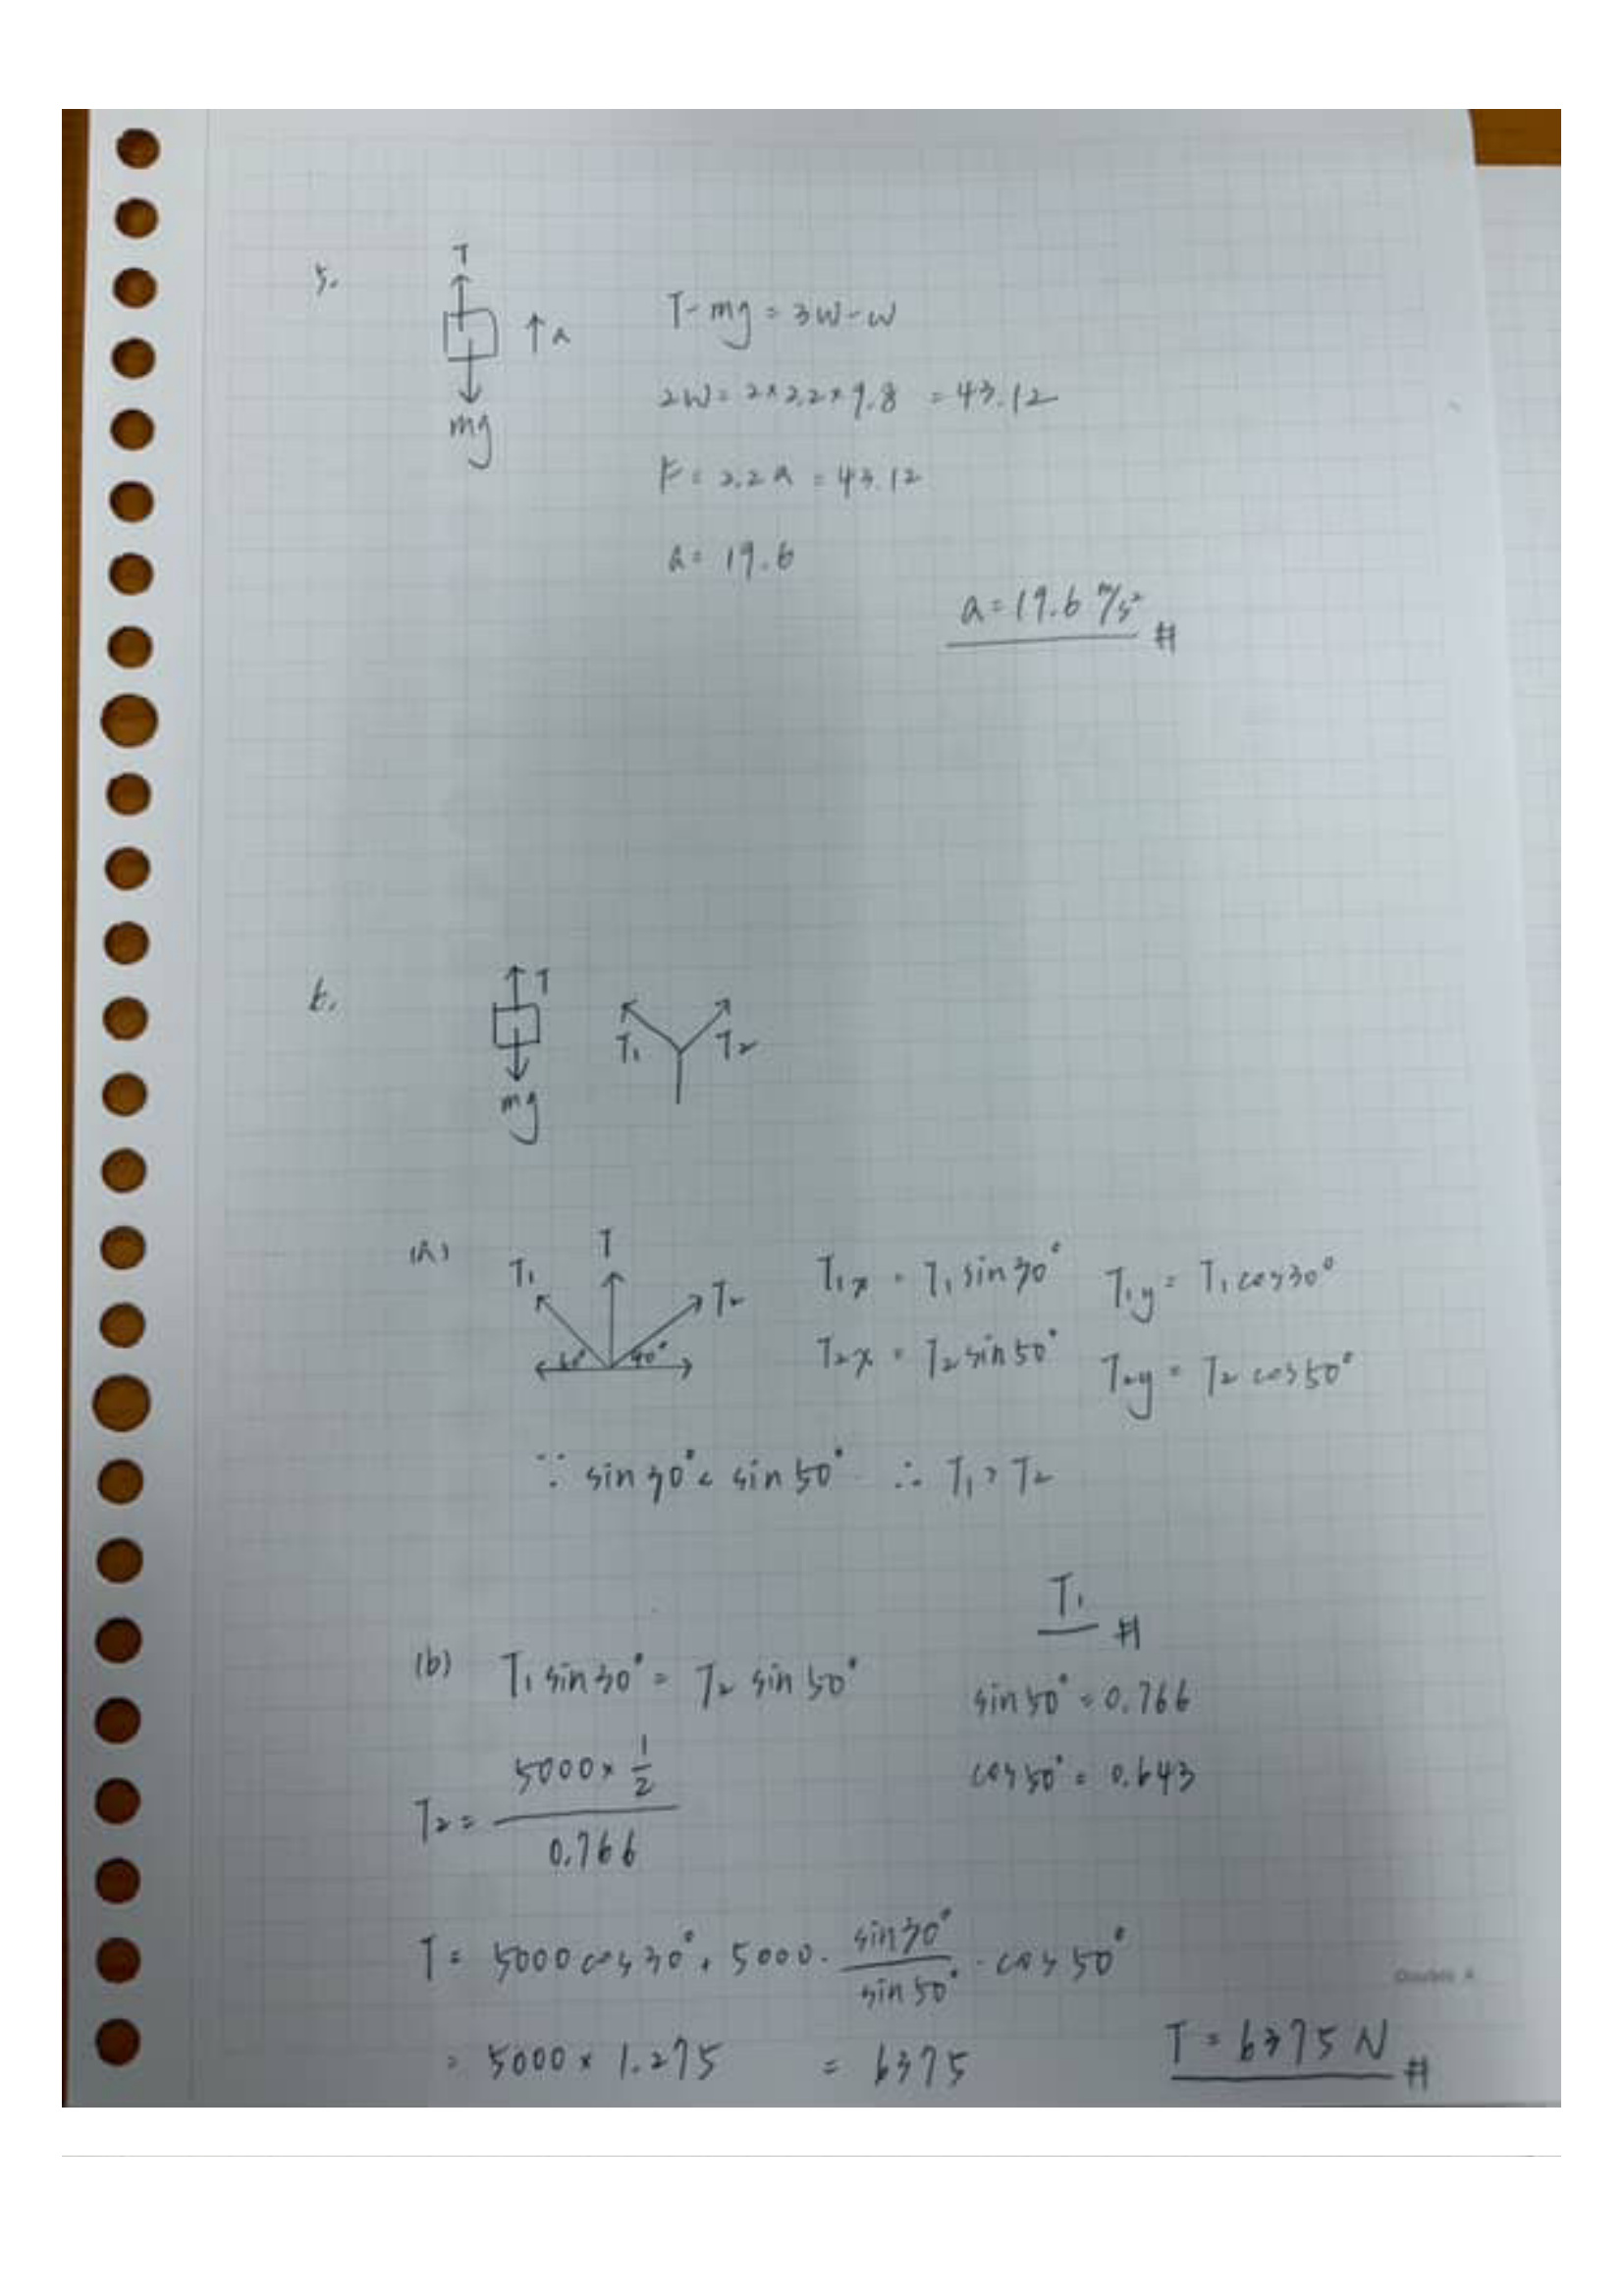 5.
T
a
mg
T - mg = 3W - W
2W = 2 × 2.2 × 9.8 = 43.12
F = 2.2a = 43.12
a = 19.6
a = 19.6 m/s² #
6.
T
mg
T₁ T₂
(a)
T₁ T T₂
60° 40°
T₁x = T₁ sin30° T₁y = T₁ cos30°
T₂x = T₂ sin50° T₂y = T₂ cos50°
∵ sin30° < sin50° ∴ T₁ > T₂
T₁ #
(b) T₁ sin30° = T₂ sin50°
sin50° = 0.766
cos50° = 0.643
T₂ = (5000 × 1/2) / 0.766
T = 5000 cos30° + 5000 · sin30°/sin50° · cos50°
= 5000 × 1.275 = 6375
T = 6375 N #
Double A